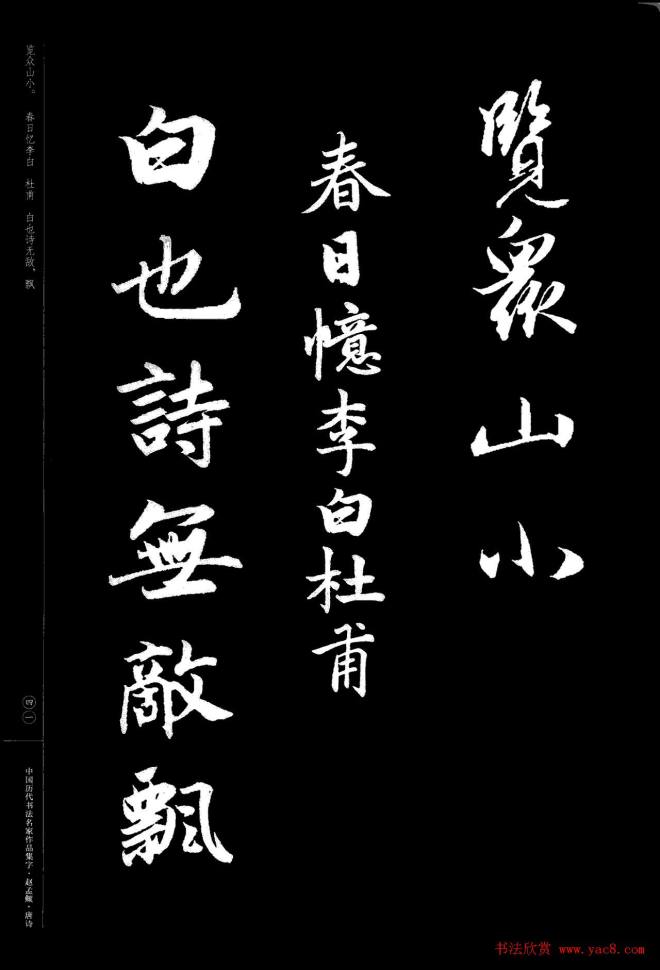 覽眾山小
春日憶李白杜甫
白也詩無敵飄
览众山小。 春日忆李白 杜甫 白也诗无敌、飘
四一
中国历代书法名家作品集字·赵孟頫·唐诗
书法欣赏 www.yac8.com